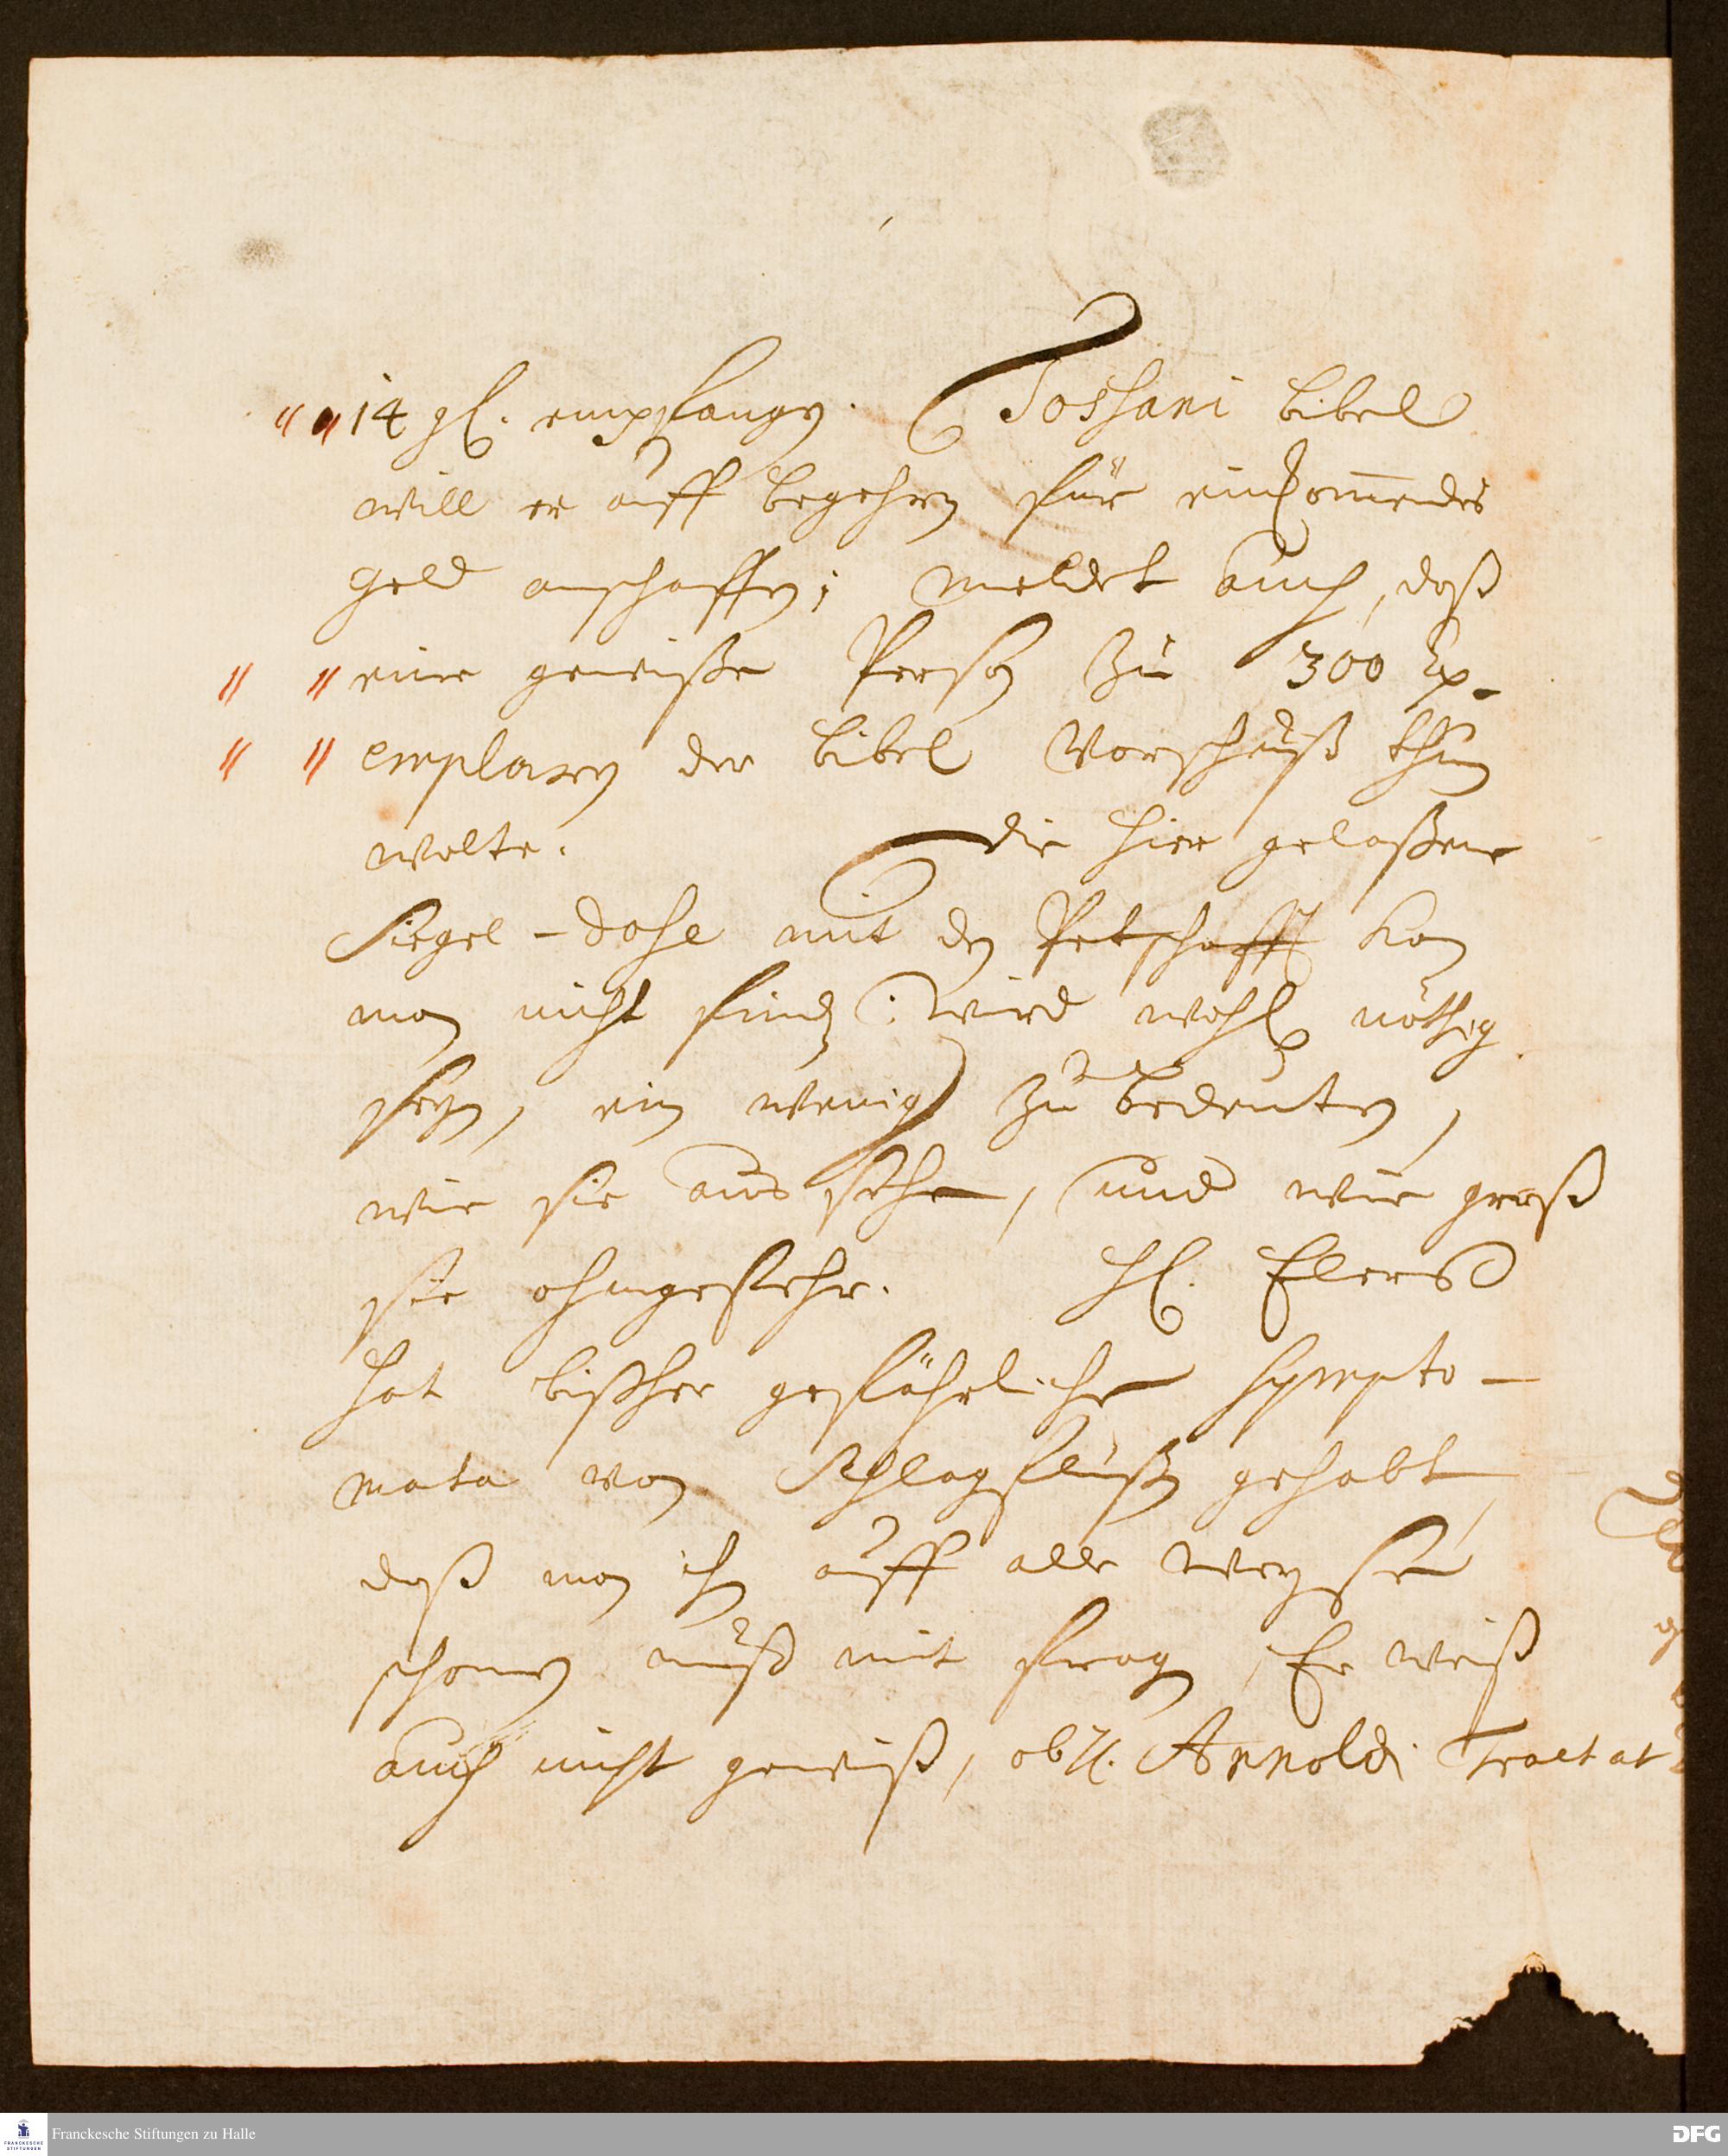 14 gl. empfangen. Tossani Bibel
will er auff begehren für einkom̅endes
geld anschaffen; meldet auch, daß
eine gewiße Person zu 300 Ex-
emplaren der Bibel Vorschuß thun
wolte. die hier gelaßene
Siegel-dose mit den Petschafft kan
man nicht finden (: wird wohl nöthig
seyn, ein wenig zu bedeuten,
wie sie aus sehe, und wie groß
sie ohngefehr. HE. Elers
hat bißher gefährliche sympto-
mata von Schlagflüßen gehabt,
daß man ihn auff alle weyse
schonen muß mit fragen, Er weiß
auch nicht gewiß, ob H. Arnoldi Tractat
Franckesche Stiftungen zu Halle
FRANCKESCHE STIFTUNGEN
DFG